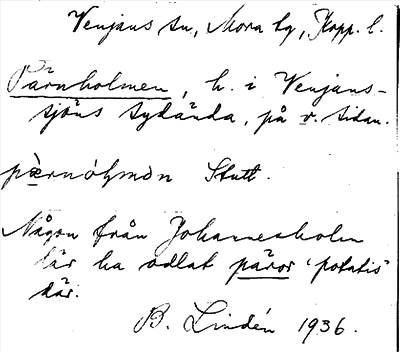 Venjans sn, Mora tg, Kopp. l.
Pärnholmen, h. i Venjans-
sjöns sydända, på v. sidan.
pæ̀rnóḷmǝn Stutt.
Någon från Johannesholm
där ha odlat päror 'potatis'
där.
B. Lindén 1936.